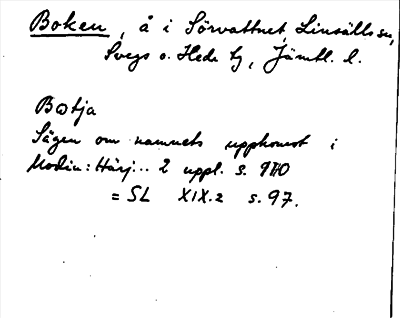 Boken, å i Sörvattnet, Linsälls sn,
Svegs o. Hede tg, Jämtl. l.
Bωtja
Sägen om namnets uppkomst i
Modin: Härj... 2 uppl. s. 910
= SL XIX.2 s. 97.